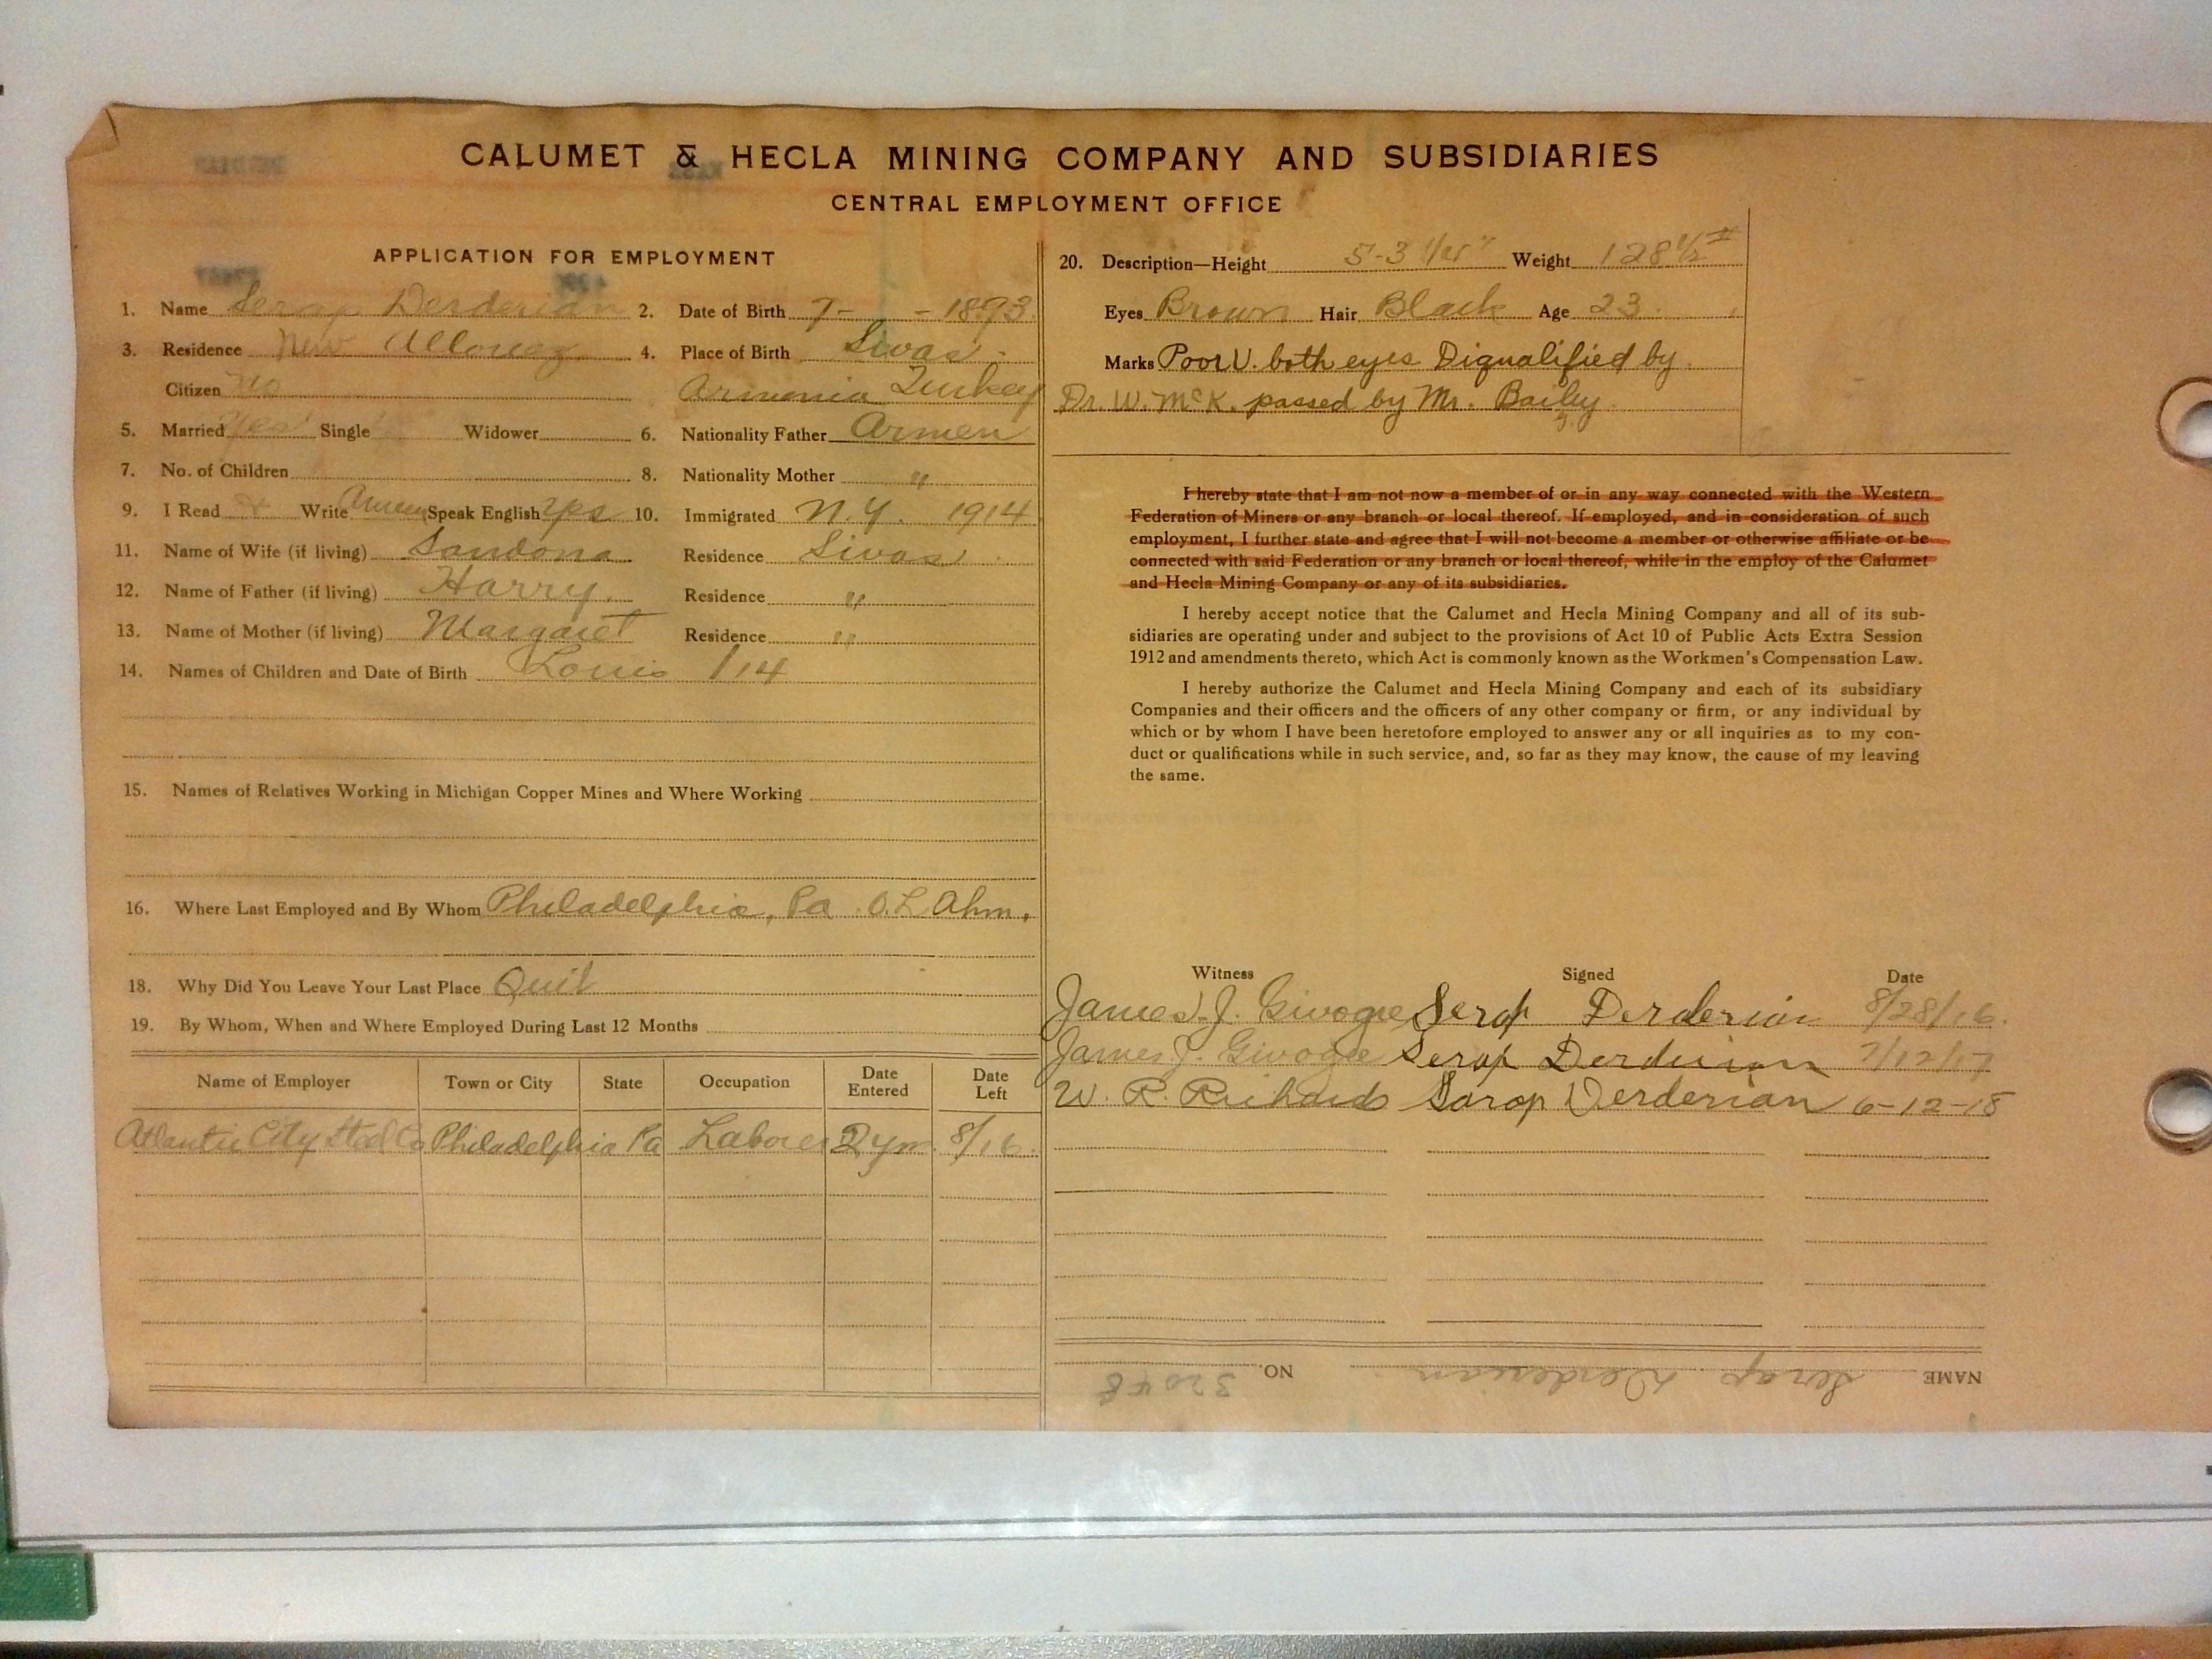 CALUMET & HECLA MINING COMPANY AND SUBSIDIARIES
CENTRAL EMPLOYMENT OFFICE
APPLICATION FOR EMPLOYMENT
1. Name Serop Derderian 2. Date of Birth 7- - 1893
3. Residence New Allouez 4. Place of Birth Sivas
Citizen No Armenia Turkey
5. Married Yes Single Widower 6. Nationality Father Armen
7. No. of Children 8. Nationality Mother "
9. I Read Write Armen Speak English yes 10. Immigrated N.Y. 1914
11. Name of Wife (if living) Sandona Residence Sivas
12. Name of Father (if living) Harry. Residence "
13. Name of Mother (if living) Margaret Residence "
14. Names of Children and Date of Birth Louis 1/14
15. Names of Relatives Working in Michigan Copper Mines and Where Working
16. Where Last Employed and By Whom Philadelphia, Pa. O.L. Ahm.
18. Why Did You Leave Your Last Place Quit
19. By Whom, When and Where Employed During Last 12 Months
Name of Employer Town or City State Occupation Date Entered Date Left
Atlantic City Steel Co Philadelphia Pa Laborer 2 ym. 8/16.
20. Description—Height 5-3 Weight 128 1/2 #
Eyes Brown Hair Black Age 23
Marks Poor V. both eyes Diqualified by
Dr. W. McK. passed by Mr. Bailey
I hereby state that I am not now a member of or in any way connected with the Western
Federation of Miners or any branch or local thereof. If employed, and in consideration of such
employment, I further state and agree that I will not become a member or otherwise affiliate or be
connected with said Federation or any branch or local thereof, while in the employ of the Calumet
and Hecla Mining Company or any of its subsidiaries.
I hereby accept notice that the Calumet and Hecla Mining Company and all of its sub-
sidiaries are operating under and subject to the provisions of Act 10 of Public Acts Extra Session
1912 and amendments thereto, which Act is commonly known as the Workmen's Compensation Law.
I hereby authorize the Calumet and Hecla Mining Company and each of its subsidiary
Companies and their officers and the officers of any other company or firm, or any individual by
which or by whom I have been heretofore employed to answer any or all inquiries as to my con-
duct or qualifications while in such service, and, so far as they may know, the cause of my leaving
the same.
Witness Signed Date
James J. Givogre Serop Derderian 8/28/16.
James J. Givogre Serop Derderian 7/12/17
W. R. Richards Sarop Derderian 6-12-18
NAME Serop Derderian NO. 32048